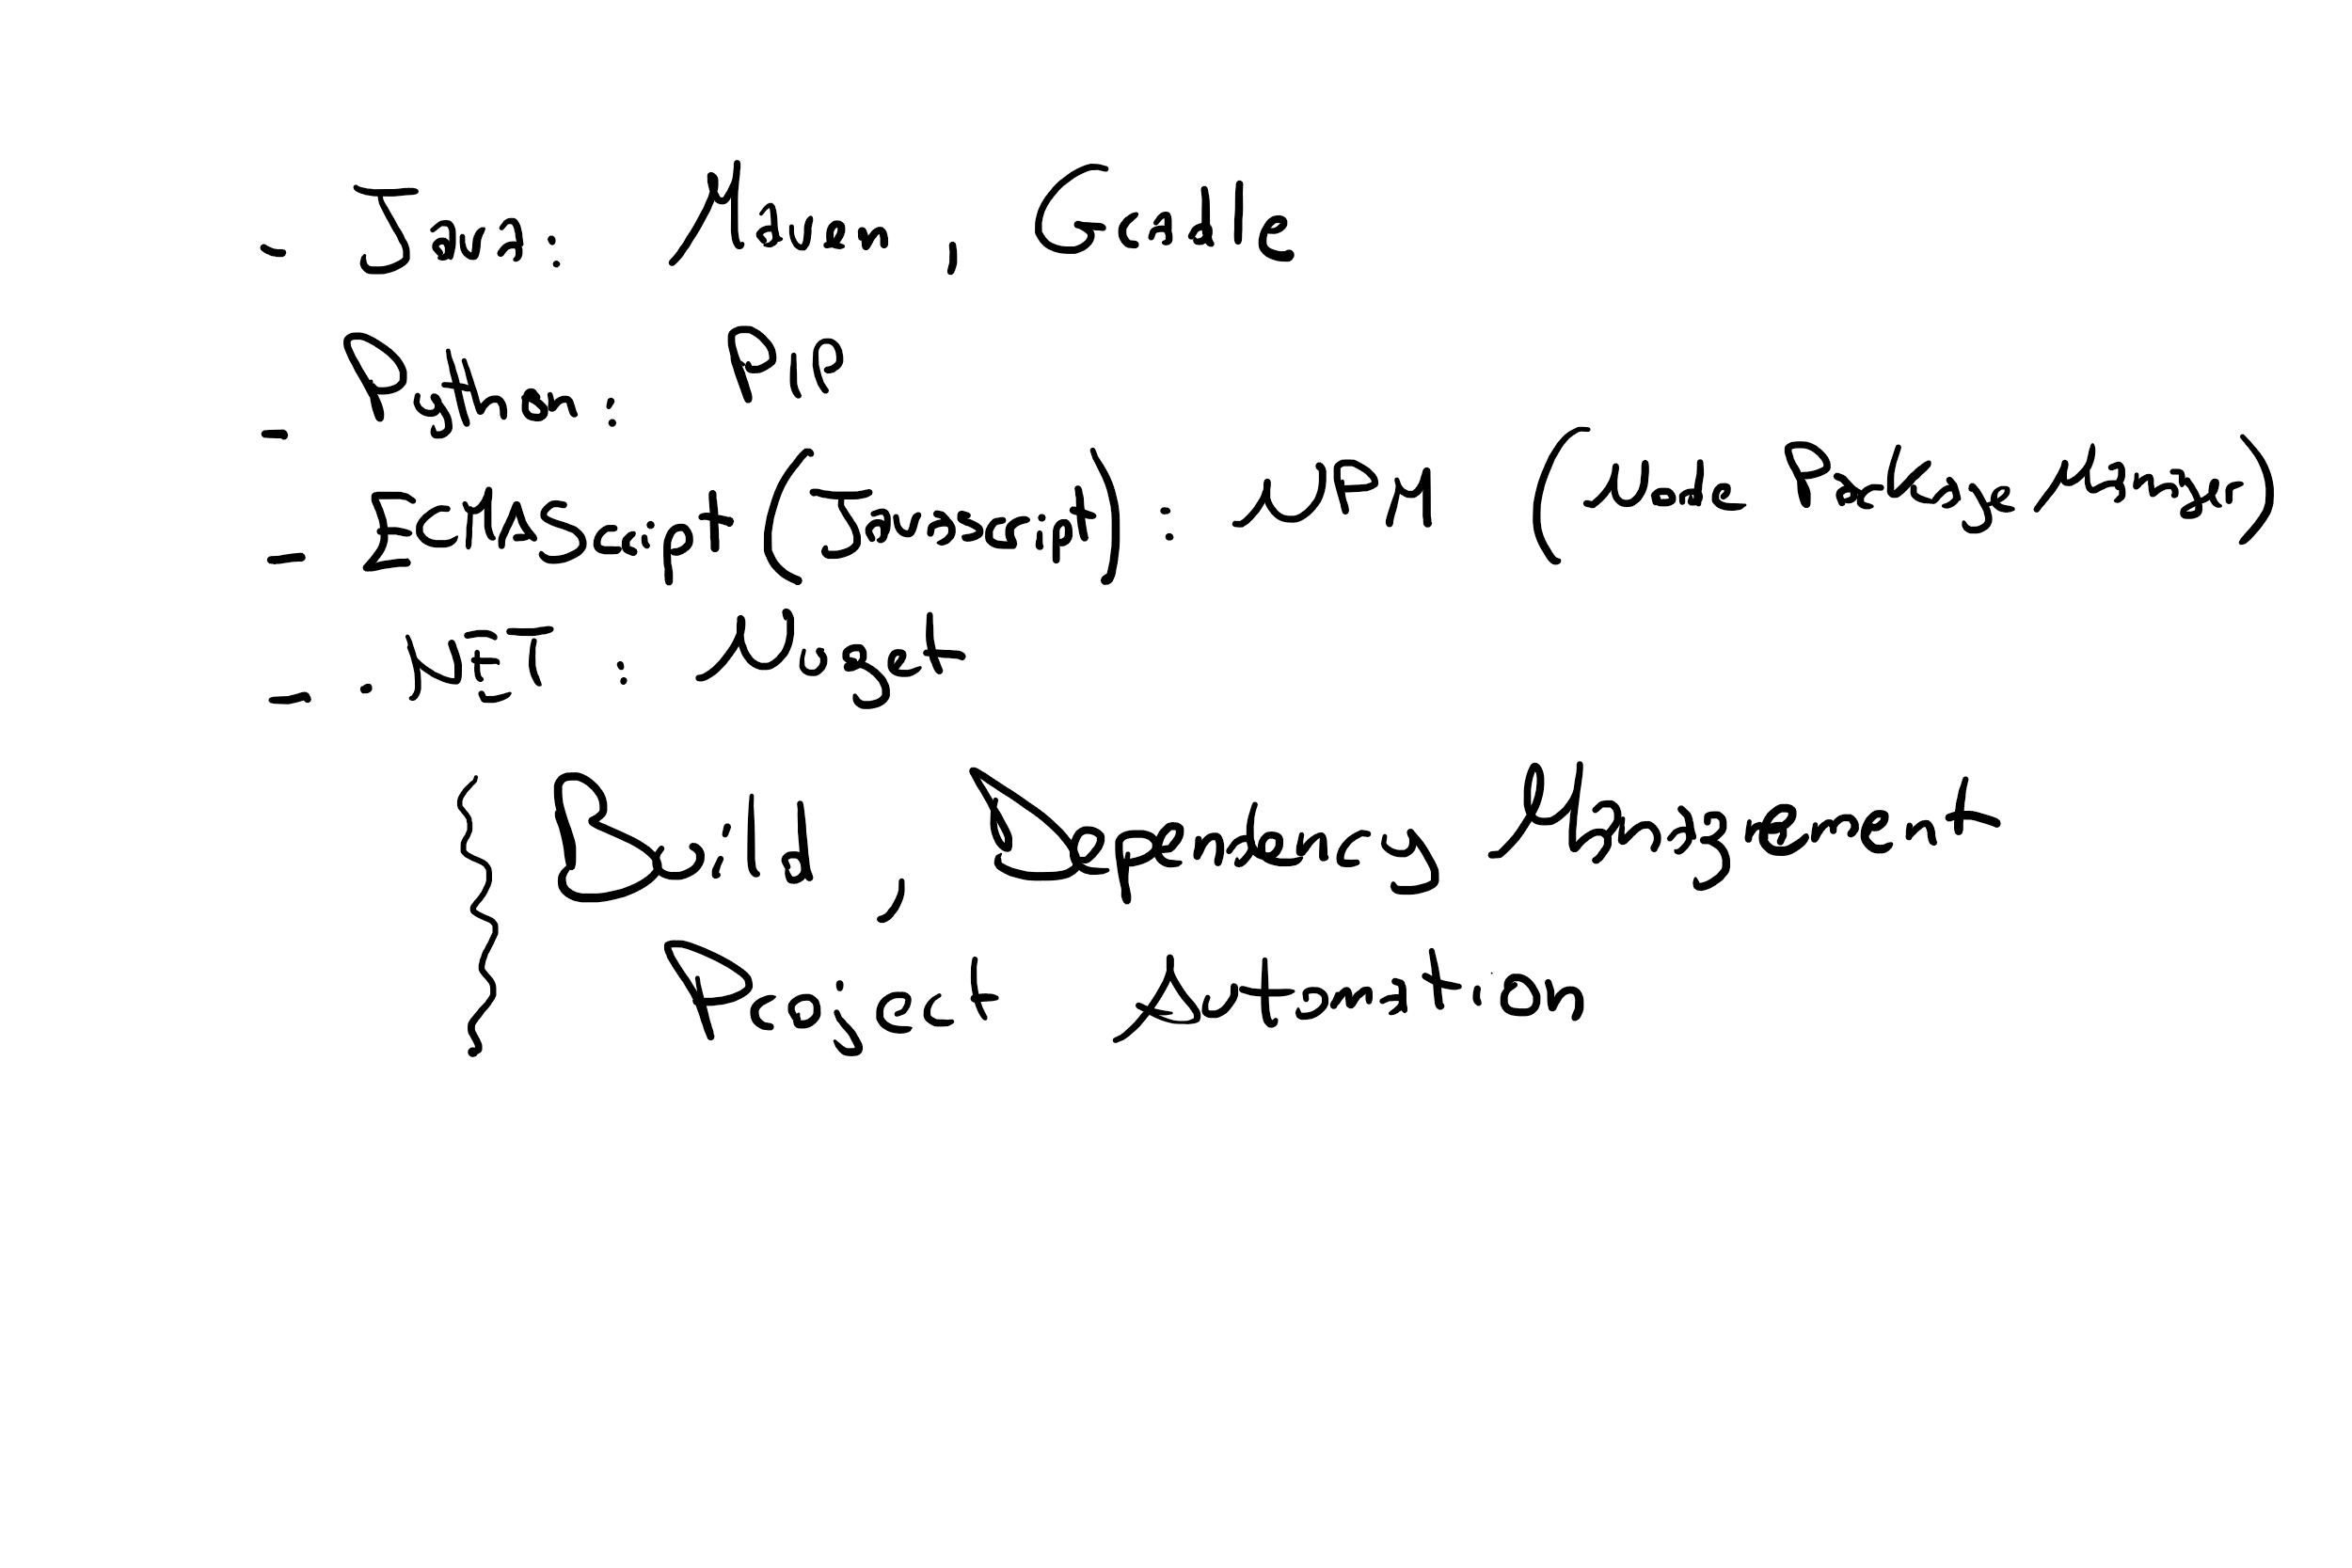 - Java: Maven, Gradle
- Python: PIP
- ECMAScript (Javascript): NPM (Node Package Manager)
- .NET: Nuget
Build, Dependency Management
Project Automation